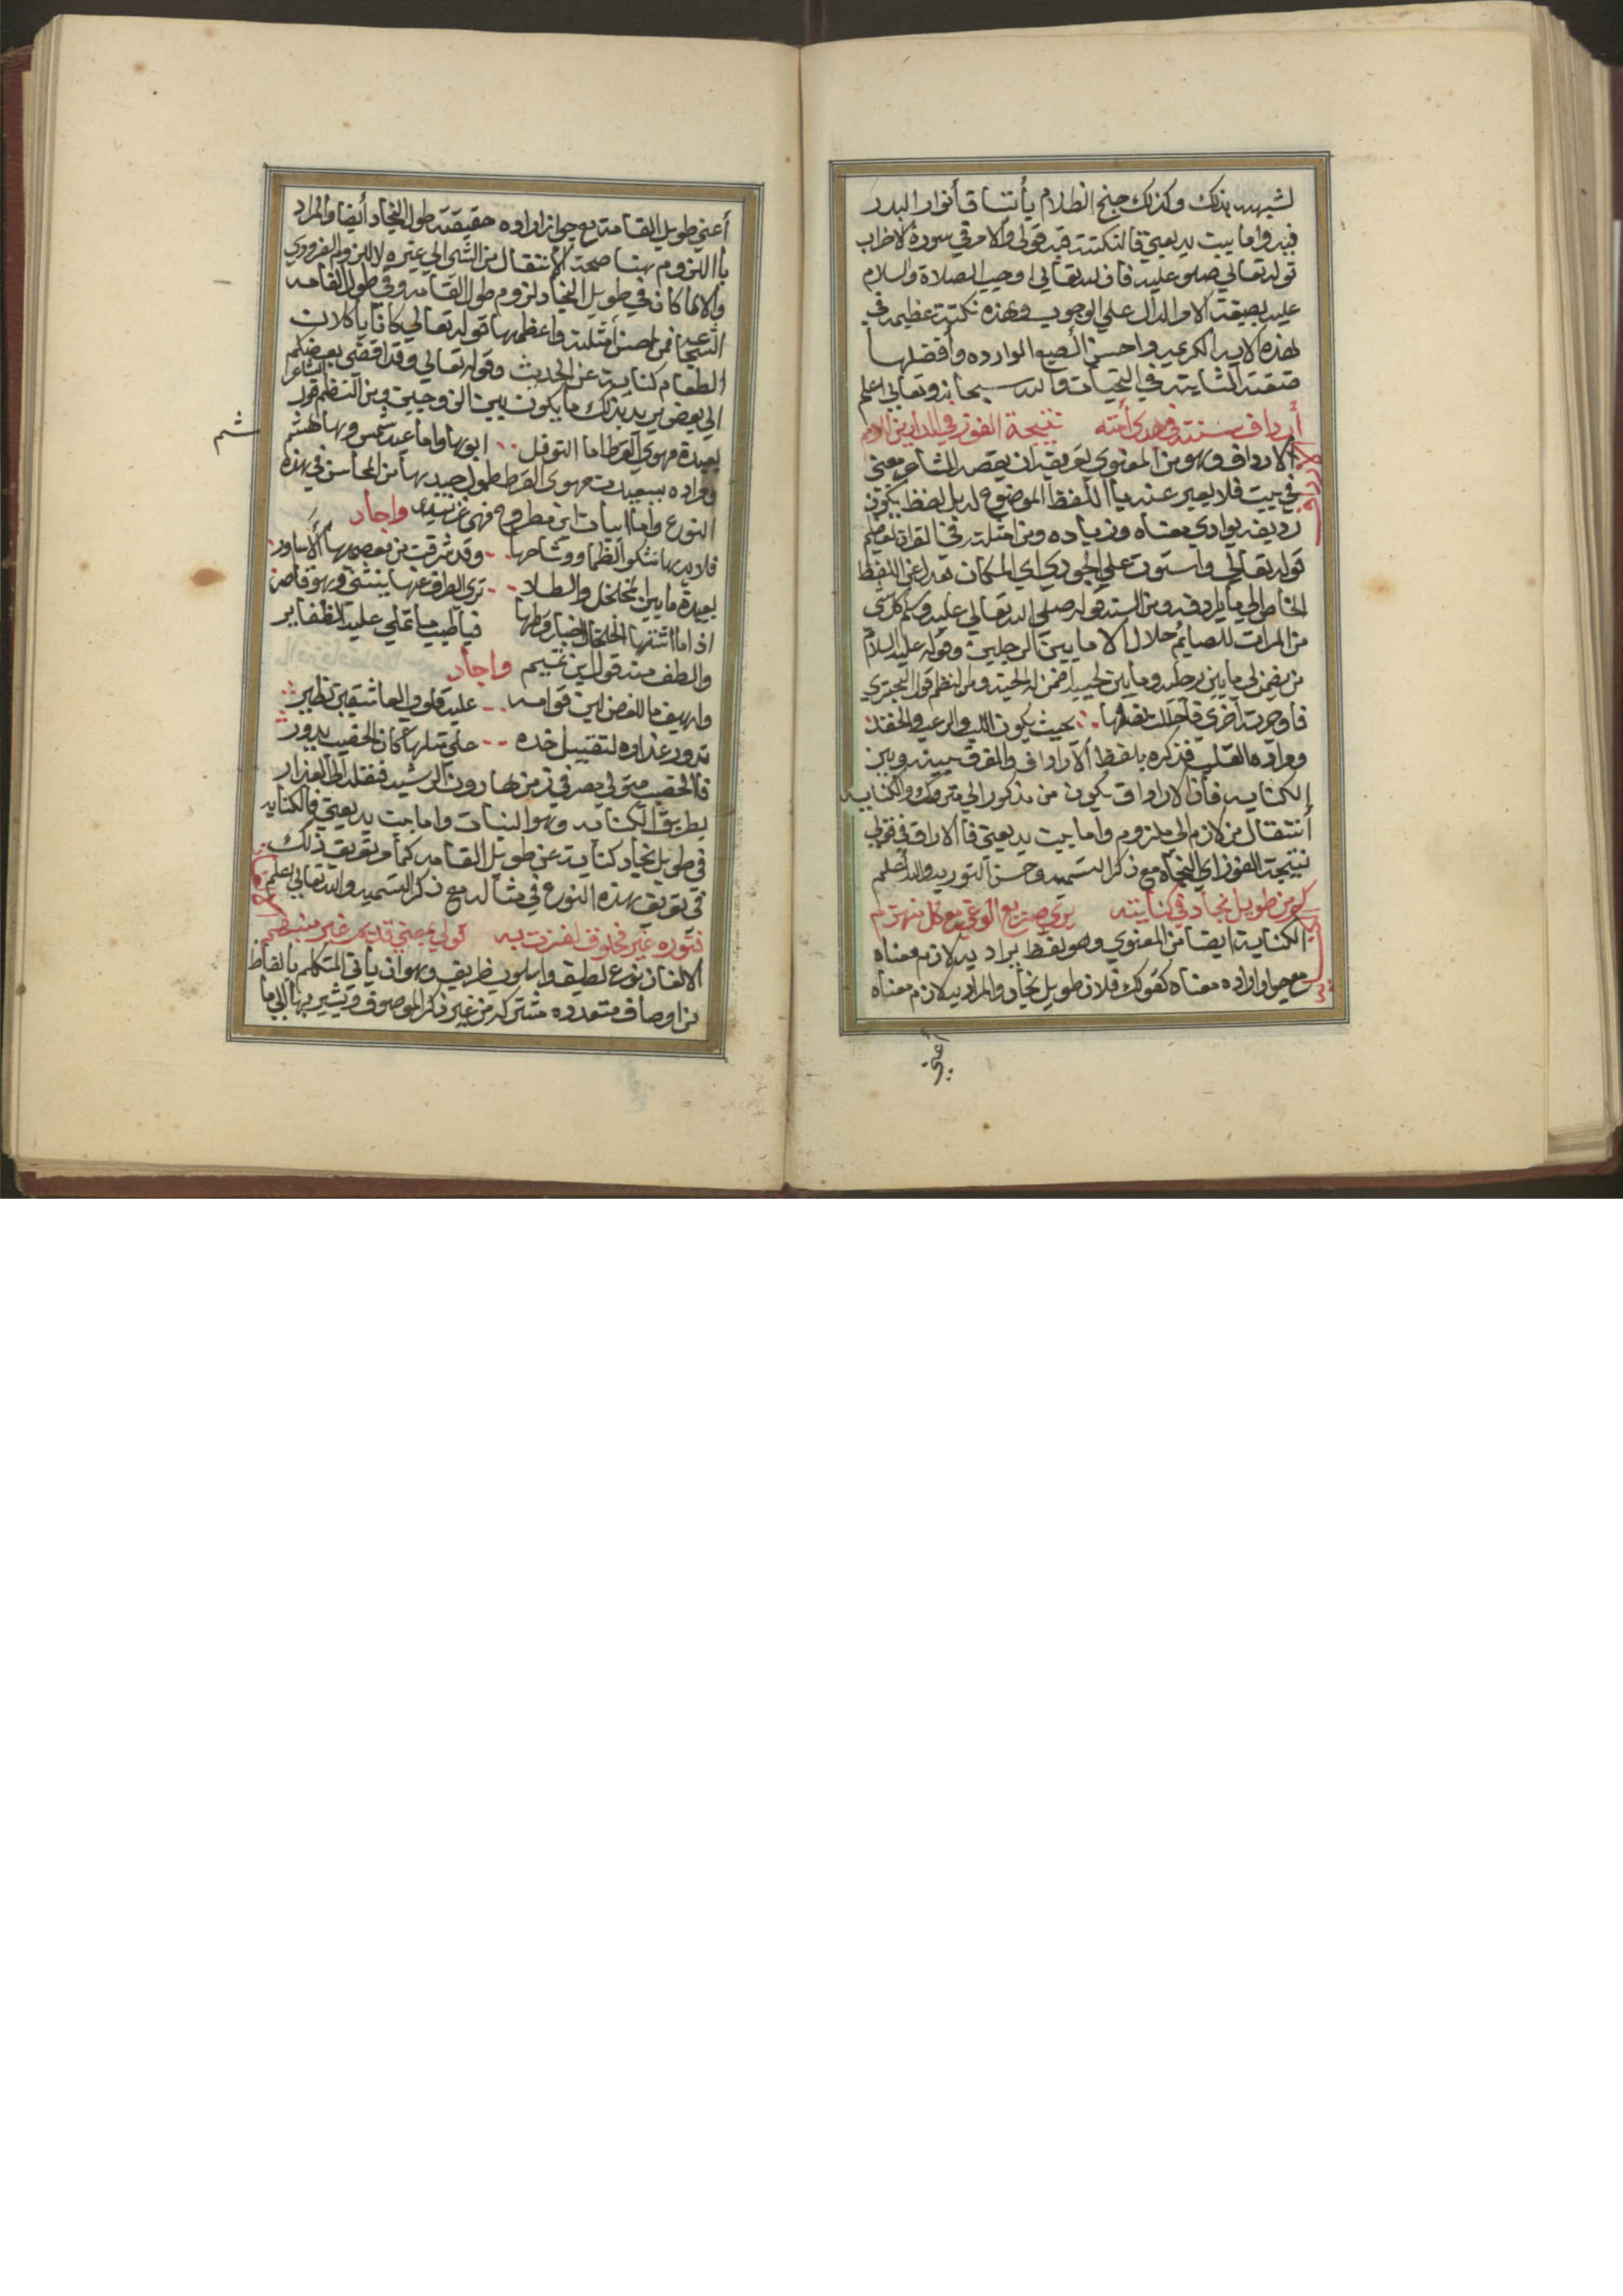 لشبهه بذلك وكذلك جنح الظلام يأتساق أنوار البدر
فيه واما بيت بديعيتي فالنكتة فيه قولي والامر في سورة الاحزاب
قوله تعالي صلو عليه فان الله تعالي اوجب الصلاة والسلام
عليه بصيغة الامر الدال علي الوجوب وهذه نكتة عظيمه في
هذه الايه الكريمه واحسن الصيع الوارده وأفضلها
صيغة في التحيات والله سبحانه وتعالي اعلم
أرداف سنته في هدي أمته نتيجة الفوز في الدارين
الارداف وهو من المعنوي تعريفه ان يقصد الشاعر معني
في بيت فلا يعبر عنه باا للفظ الموضوع له بل بلفظ يكون
رديفه يوادي معناه وزياده ومن امثلته في القران العظيم
قوله تعالي واستوت علي الجودي اي المكان فعدل عن اللفظ
الخاص الي ما يرادفه ومن السنه قوله صلي الله تعالي عليه وسلم كل شي
من المرات للصايم حلال الا مابين الرجلين وقوله عليه السلام
من يضمن لي مابين رجليه ومابين لحييه اضمن له الجنة ومن النظم قول البحتري
فاوجرته أخري فأحللت نصلها بحيث يكون اللب والرعب والحقد
ومراده القلب فذكره بلفظ الارداف والفرق بينه وبين
الكنايه فأن الارداف يكون من مذكور الي متروك والكنايه
أنتقال من لازم الي ملزوم وأما بيت بديعيتي فأالارداف في قولي
نتيجة الفوز اي النجاه مع ذكر التسميه وحسن التوريه والله أعلم
كم من طويل نجاد في كنايته يري صريع الوغي مع كل منهزم
الكناية ايضا من المعنوي وهو لفظ يراد به لازم معناه
مع جواز اراده معناه كقولك فلان طويل نجاد والمراد به لازم معناه
أعني
أعني طويل القامة مع جواز اراده حقيقة طول النجاد أيضا والمراد
باا للزوم هنا صحة الأنتقال من الشي الي غيره لا اللزوم الضروري
والا لما كان في طويل النجاد لزوم طول القامه وفي طول القامه
الشجاعه فمن احسن أمثلته واعظمها قوله تعالي كانا ياكلان
الطعام كناية عن الحدث وقوله تعالي وقد افضي بعضكم
الي بعض يريد بذلك ما يكون بين الزوجين ومن النظم قول الشاعر
بعيدة مهوي القرط اما التوفل ابوها واما عبد شمس وهاهشم
شم
ومراده ببعيدت مهوي القرط طول جيدها من المحاسن في هذه
النوع وأما ابيات ابن مطروح فهي غزيره واجاد
قلايدها تشكو الظما ووشاحها وقد شرقت من معصميها ألاساور
بعيدة مابين المخلخل والطلا تري الطرف عنها ينثني وهو قاصر
اذ اما اشتها الخلخال اخبار قرطها فيا طيب ما تملي عليه الظفاير
والطف منه قول ابن تميم واجاد
واهيف ما للغصن لين قوامه عليه قلوب العاشقين تطير
تدور عذاره لتقبيل خده علي مثلها كان الخصيب يدور
فاالخصيب متولي مصر في زمن هارون الرشيد فنقله الي العذار
بطريق الكنايه وهو النبات واما بيت بديعيتي فالكنايه
في طويل نجاد كناية عن طويل القامه كما مر تعريف ذلك
في تعريف هذه النوع في مثاله مع ذكر التسميه والله تعالي اعلم
نوره غير مخلوف لغزت به قولي بمعني قديم غير منبهم
الالغاز نوع لطيف واسلوب ظريف وهو ان يأتي المتكلم بالفاظ
من اوصاف متعدده مشتركه من غير ذكر الموصوف ويشير بها الي ما